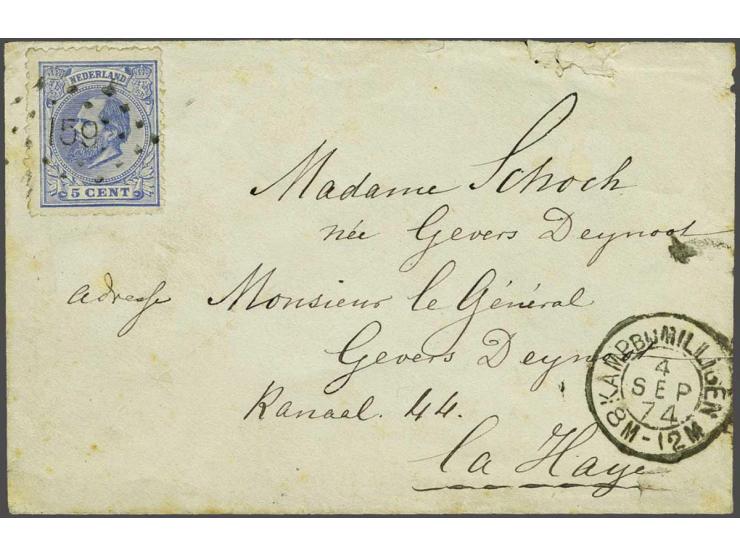 NEDERLAND
159
5 CENT
Madame Schoch
née Gevers Deynoot
adresse Monsieur le Général
Gevers Deynoot
Kanaal. 44.
la Haye
KAMP BIJ MILLIGEN
4
SEP
74
8M-12M